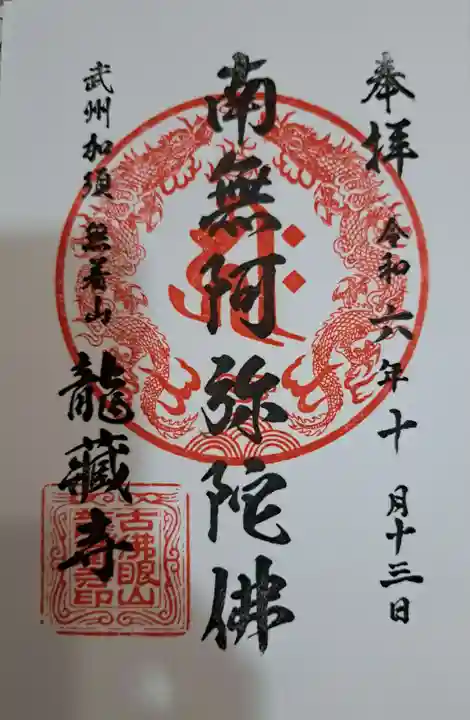 奉拝 令和六年十月十三日
南無阿弥陀佛
武州加須 無着山 龍藏寺
古佛眼山